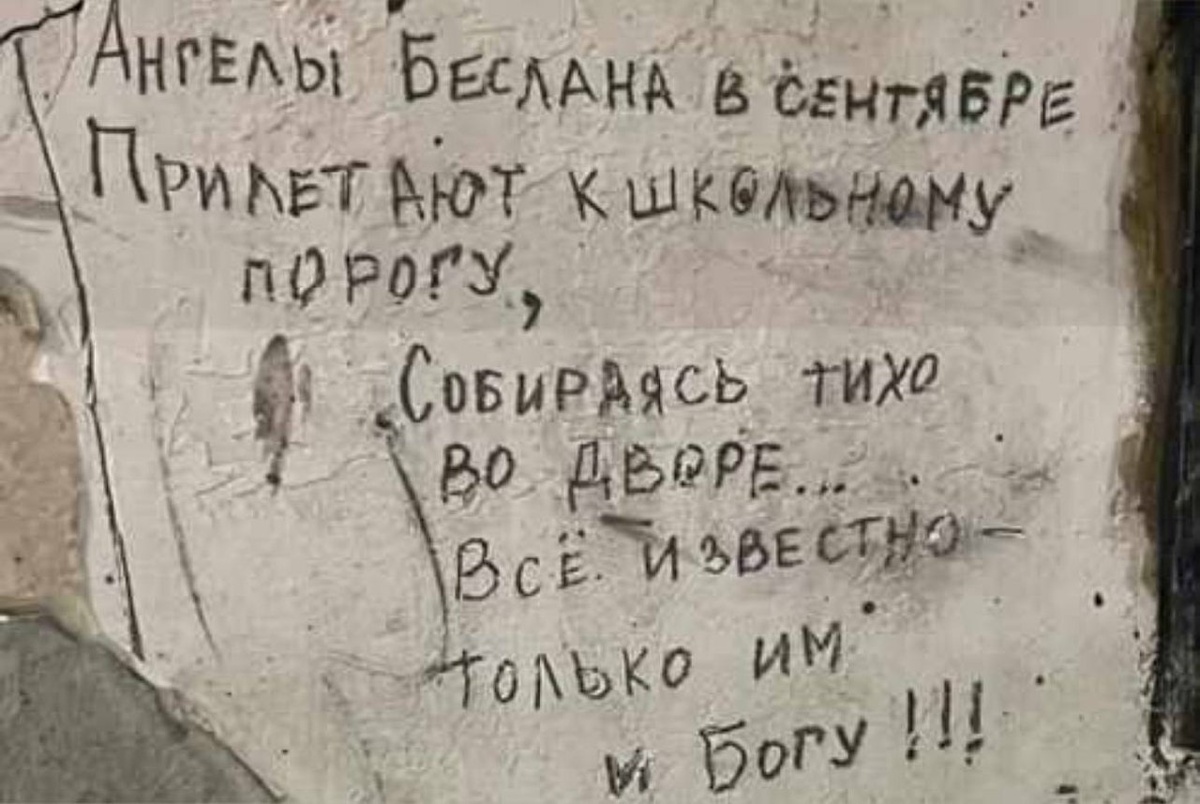 Ангелы Беслана в сентябре
Прилетают к школьному
порогу,
Собираясь тихо
во дворе...
Всё известно –
только им
и Богу!!!